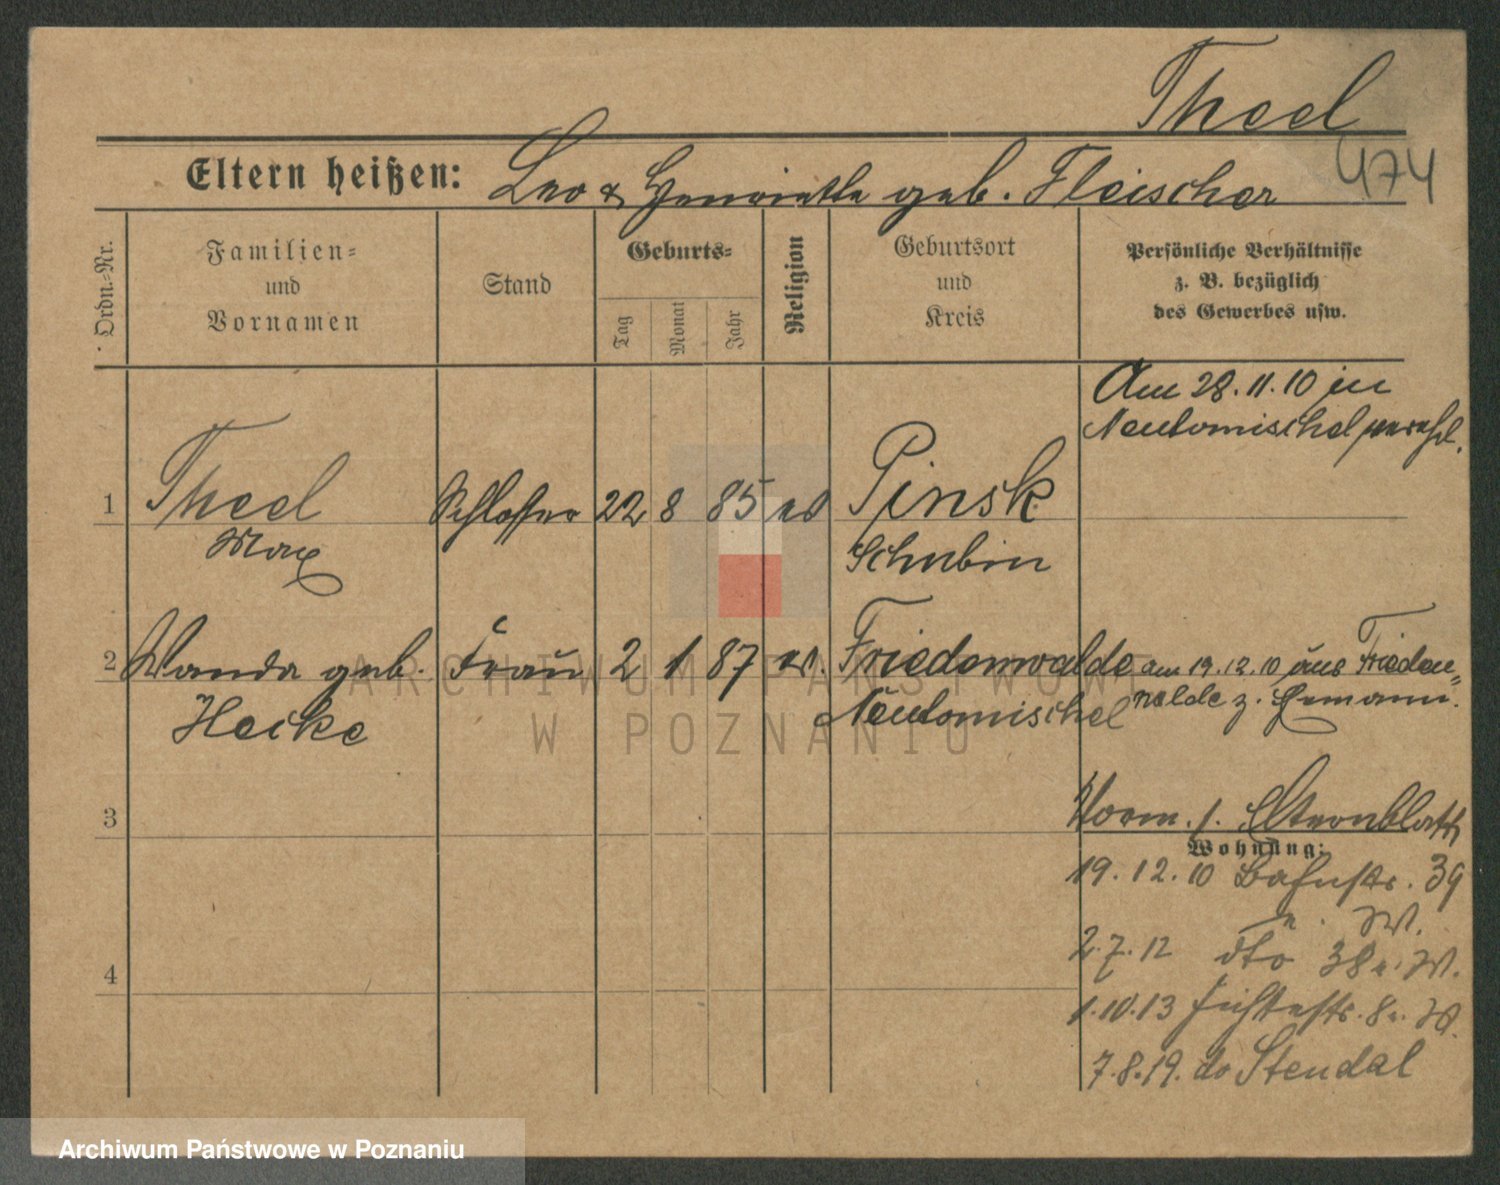 Theel
474
Eltern heißen: Leo & Henriette geb. Fleischer
Ordn.-Nr.
Familien-
und
Vornamen
Stand
Geburts-
Tag
Monat
Jahr
Religion
Geburtsort
und
Kreis
Persönliche Verhältnisse
z. B. bezüglich
des Gewerbes usw.
Am 28.11.10 in
Neutomischel verehl.
1 Theel Schlosser 22 8 85 Pinsk
Max Schubin
2 Wanda geb. Frau 2 1 87 ev. Friedenwalde am 19.12.10 aus Frieden-
Hecke Neutomischel walde z. Ehemann.
3
Vorm. f. Elternblatt
Wohnung:
19.12.10 Bahnstr. 39
W.
2.7.12 dto 38 W.
4
1.10.13 Fichtestr. 8 W.
7.8.19. do Stendal
ARCHIWUM PAŃSTWOWE
W POZNANIU
Archiwum Państwowe w Poznaniu